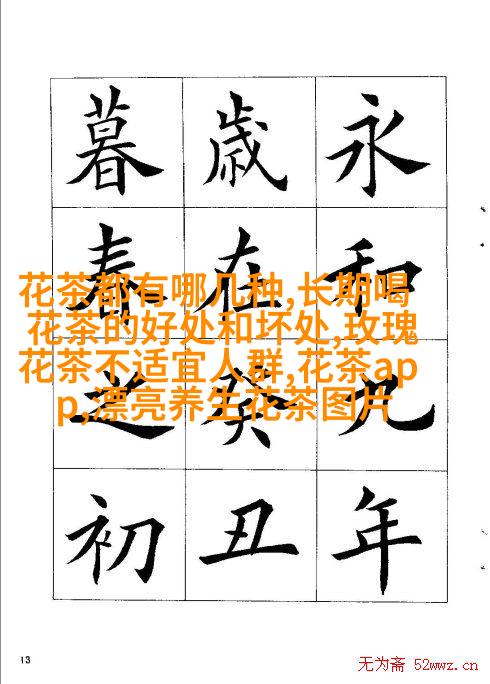 永和九年
歲在癸丑
暮春之初
花茶都有哪几种,长期喝
花茶的好处和坏处,玫瑰
花茶不适宜人群,花茶ap
p,漂亮养生花茶图片
13
无为斋 52wwz.cn